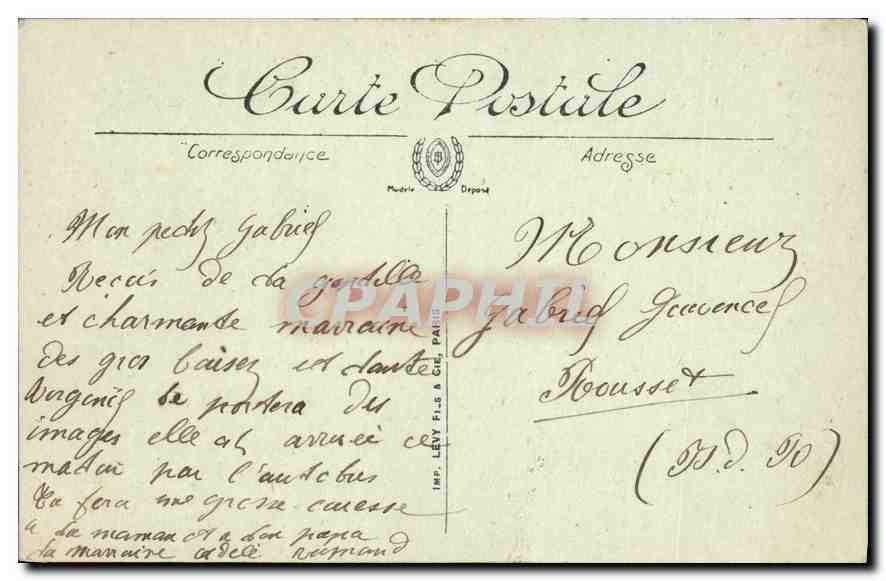 Carte Postale
Correspondance
Adresse
Modèle Déposé
Mon petit Gabriel
Recois de ta gentille
et charmante marraine
des gros baiser et tante
Virginie te portera des
images elle est arrivée ce
matin par l'autobus
tu fera une grosse caresse
a ta maman et a ton papa
ta marraine adèle
IMP. LEVY FILS & CIE, PARIS
CPAPHIL
Monsieur
Gabriel
Rousset
(B. d. R)